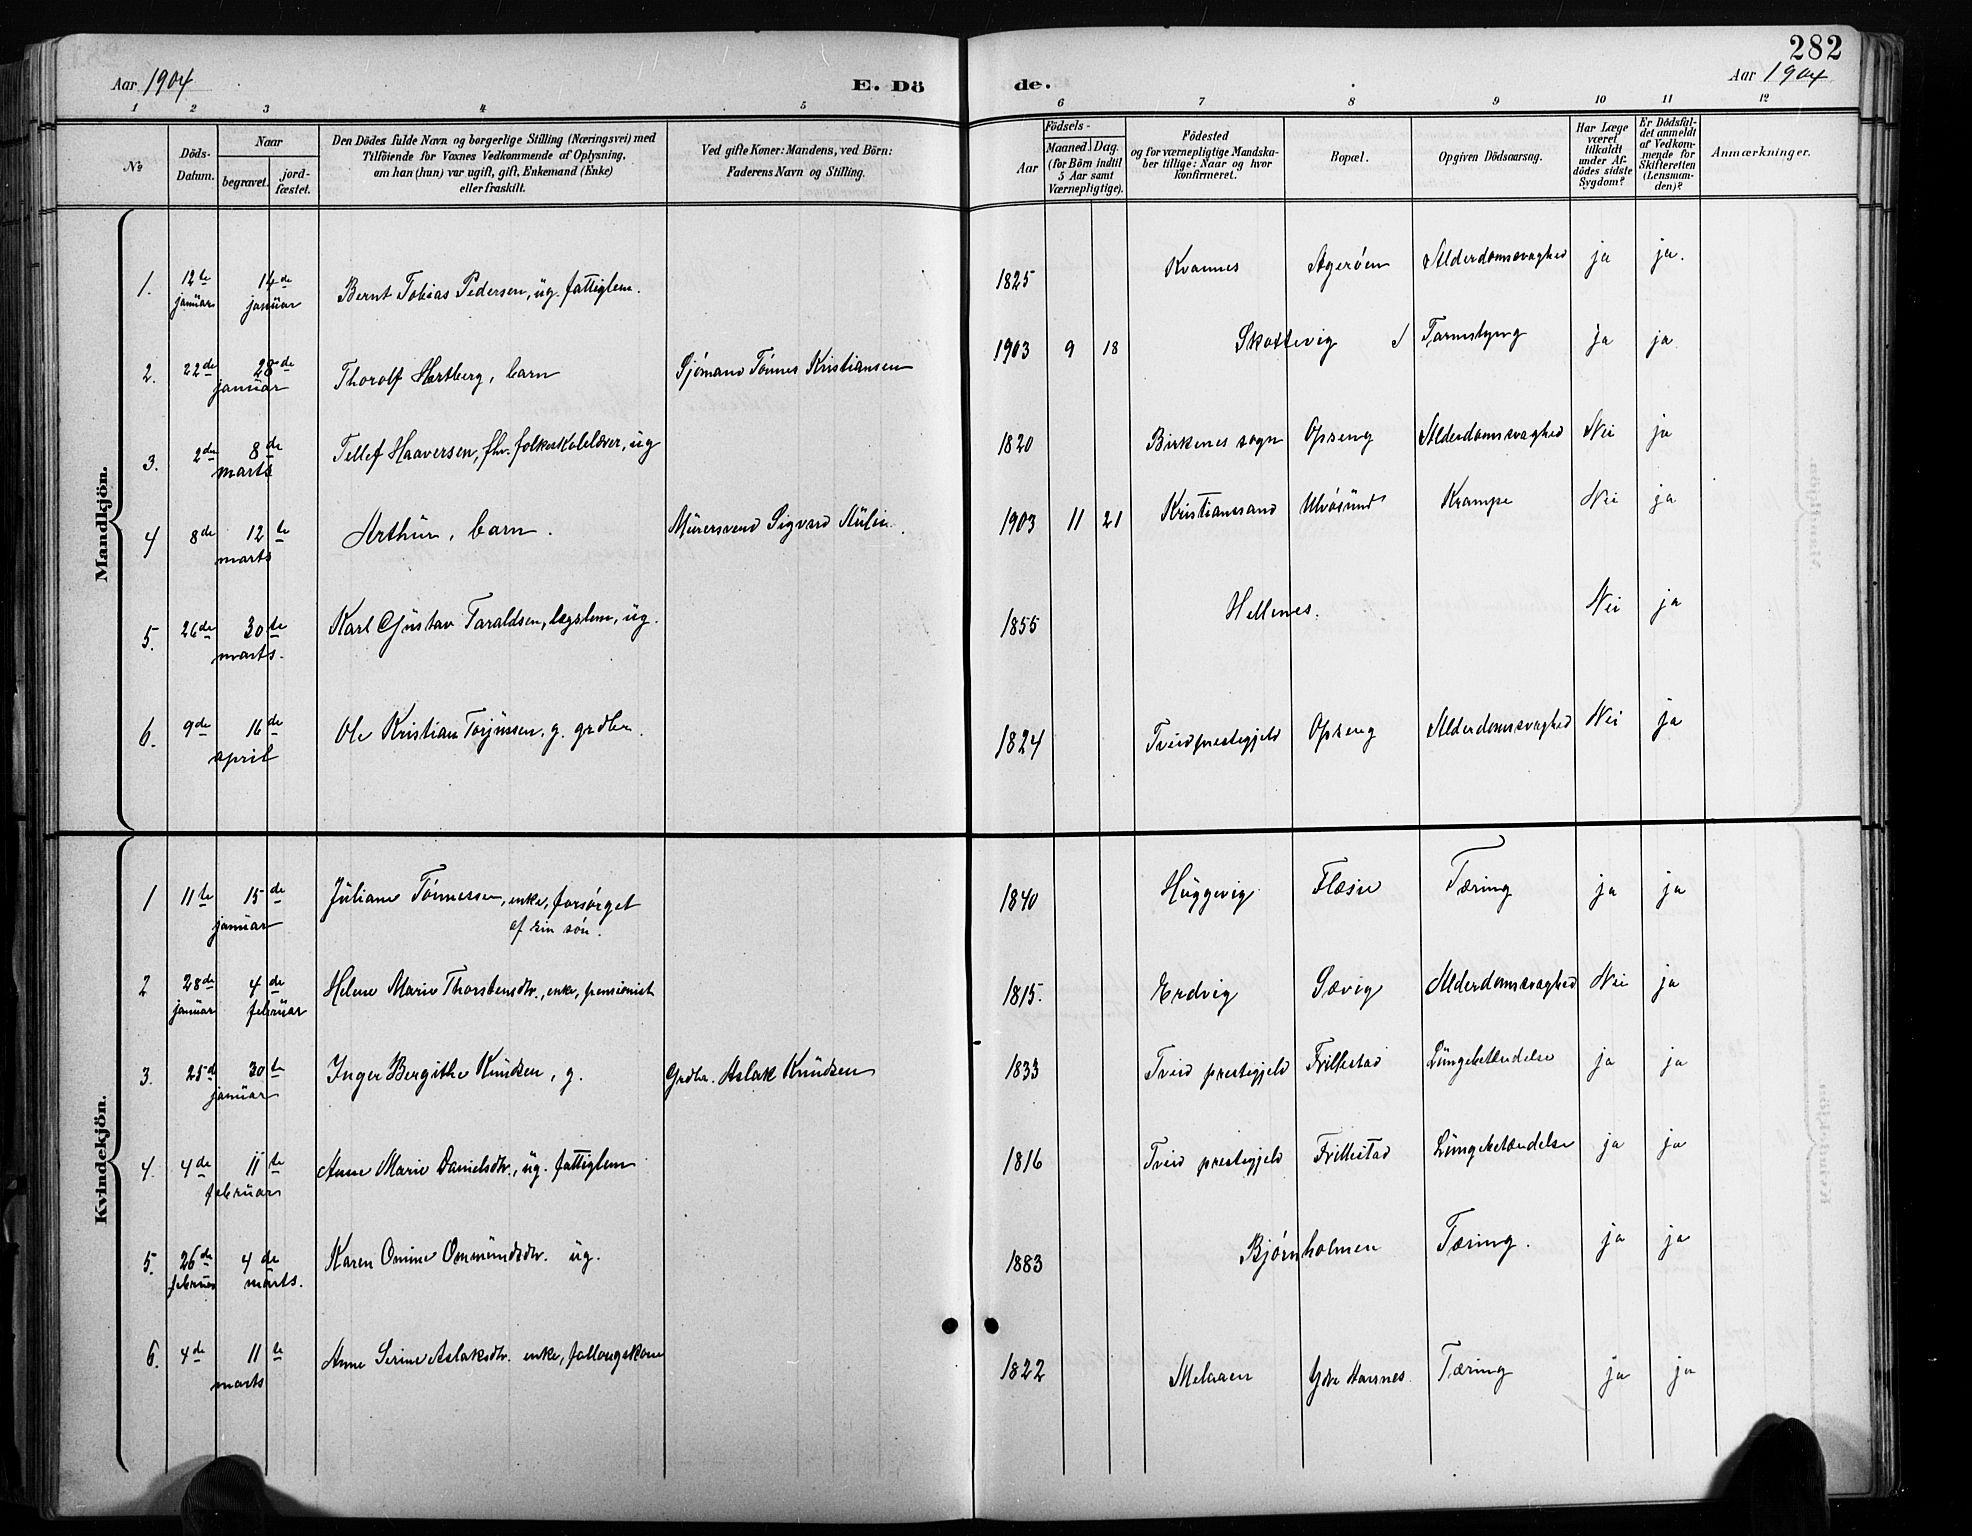 282
Aar 1904
E. Dö
de.
Aar 1904
1 2 3 4 5 6 7 8 9 10 11 12
No
Döds-
Datum.
Naar
begravet.
jord-
fæstet.
Den Dödes fulde Navn og borgerlige Stilling (Næringsvei) med
Tilföiende for Voxnes Vedkommende af Oplysning,
om han (hun) var ugift, gift, Enkemand (Enke)
eller fraskilt.
Ved gifte Koner: Mandens, ved Börn:
Faderens Navn og Stilling.
Födsels-
Aar
Maaned.
Dag.
(for Börn indtil
5 Aar samt
Værnepligtige).
Födested
og for værnepligtige Mandska-
ber tillige: Naar og hvor
konfirmeret.
Bopæl.
Opgiven Dödsaarsag.
Har Læge
været
tilkaldt
under Af-
dödes sidste
Sygdom?
Er Dödsfal-
det anmeldt
af Vedkom-
mende for
Skifteretten
(Lensman-
den)?
Anmærkninger.
Mandkjön.
1. 12te januar 14de januar Bernt Tobias Pedersen, ug. fattiglem. 1825 Agerøen Alderdomssvaghed ja ja.
2. 22de 28de januar Thorolf Hartberg, barn Sjømand Tønnes Kristiansen 1903 9 18 Skottevig ja ja
3. 2den 8de marts Tellef Haaversen, fhv. folkeskolelærer, ug 1820 Birkenes sogn Opseng Alderdomssvaghed Nei ja
4 8de 12te marts Arthur, barn. Murersvend Sigvard 1903 11 21 Kristianssand Ulvøsund Krampe Nei ja
5. 26de 30te marts. Karl Gustav Taraldsen, lægslem, ug. 1855 Hellenes. Nei ja
6. 9de 16de april Ole Kristian Torjussen, g. grdbr. 1824 Tveid prestegjeld Opseng Alderdomssvaghed Nei ja
Kvindekjön.
1 11te 15de januar Juliane Tønnessen, enke, forsørget
af sin søn. 1840 Huggevig Flæsie Tæring ja ja
2 28de januar 4de februar Helene Marie Thorstensdtr., enke, pensionist 1815. Erdvig Sævig Alderdomssvaghed Nei ja
3. 25d 30te januar Inger Bergithe Knudsen, g. Grdbr. Aslak Knudsen 1833 Tveid prestegjeld Frillestad Lungebetændelse ja ja
4. 4de 11te februar Anne Marie Danielsdtr., ug. fattiglem 1816 Tveid prestegjeld Frillestad Lungebetændelse ja ja
5. 26de februar 4de marts. Karen Omine Ommundsdtr. ug. 1883 Bjørnholmen Tæring. ja ja
6. 4de 11te marts Anne Serine Aslaksdtr. enke, 1822 Melaaen Ydre Aarsnes Tæring ja ja